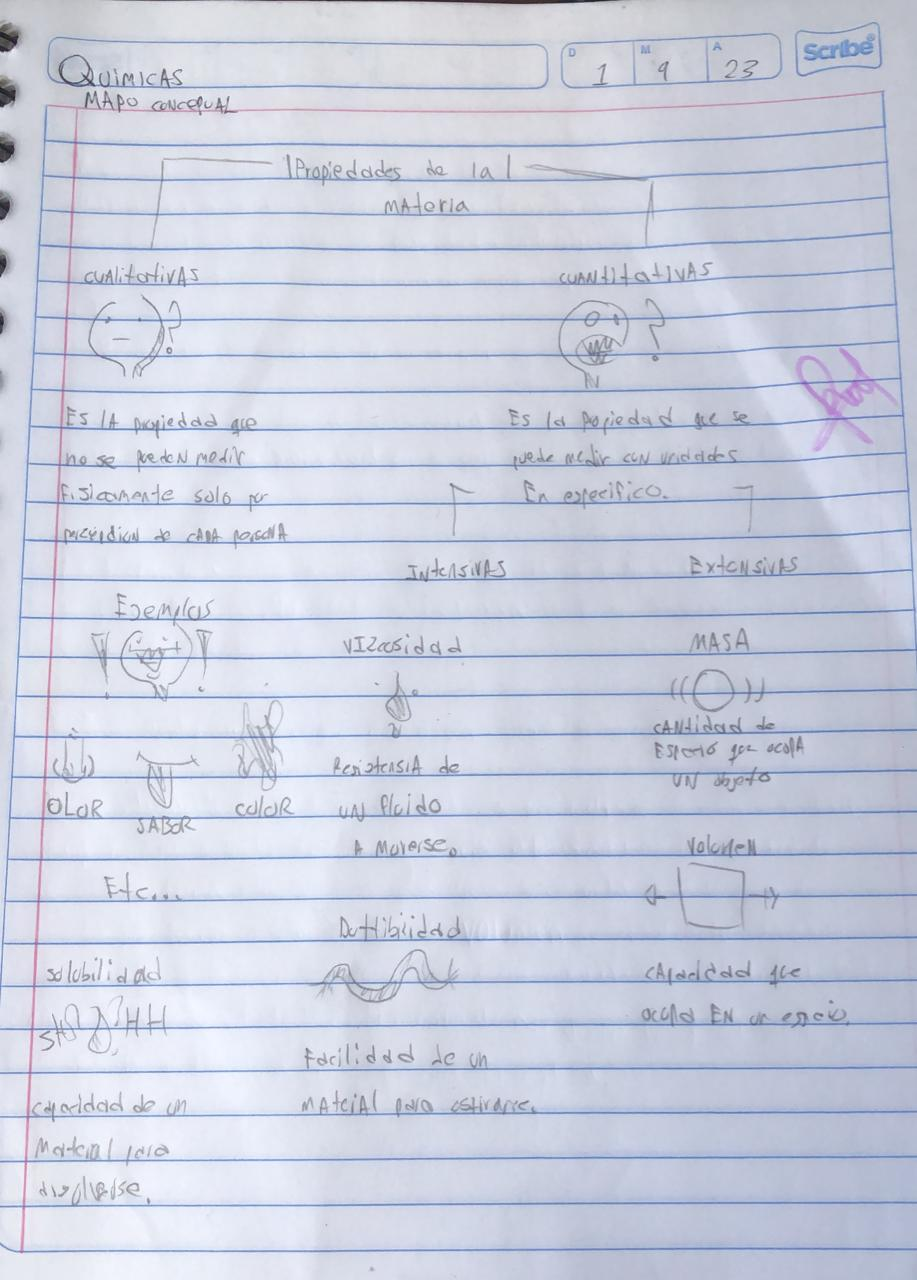 D M A
1 9 23
Scribe
QUIMICAS
MAPO CONCEPUAL
Propiedades de la
MAteria
CUAlitativAS
CUANtitativAS
ES lA propiedad que
no se pueden medir
Fisicamente solo por
de CADA persoNA
Es la propiedad que se
puede medir con unidades
En especifico.
INtensivAS
ExtENSivAS
Ejemplos
OLOR
SABOR
COlOR
Etc...
VIZcosidad
ResistensiA de
UN fluido
A moverse.
MASA
CANtidad de
que ocupA
UN objeto
VolumeN
que
ocupa EN un espacio.
Duttibilidad
Facilidad de un
MAteiAl para estirarse.
Solubilidad
capacidad de un
Material para